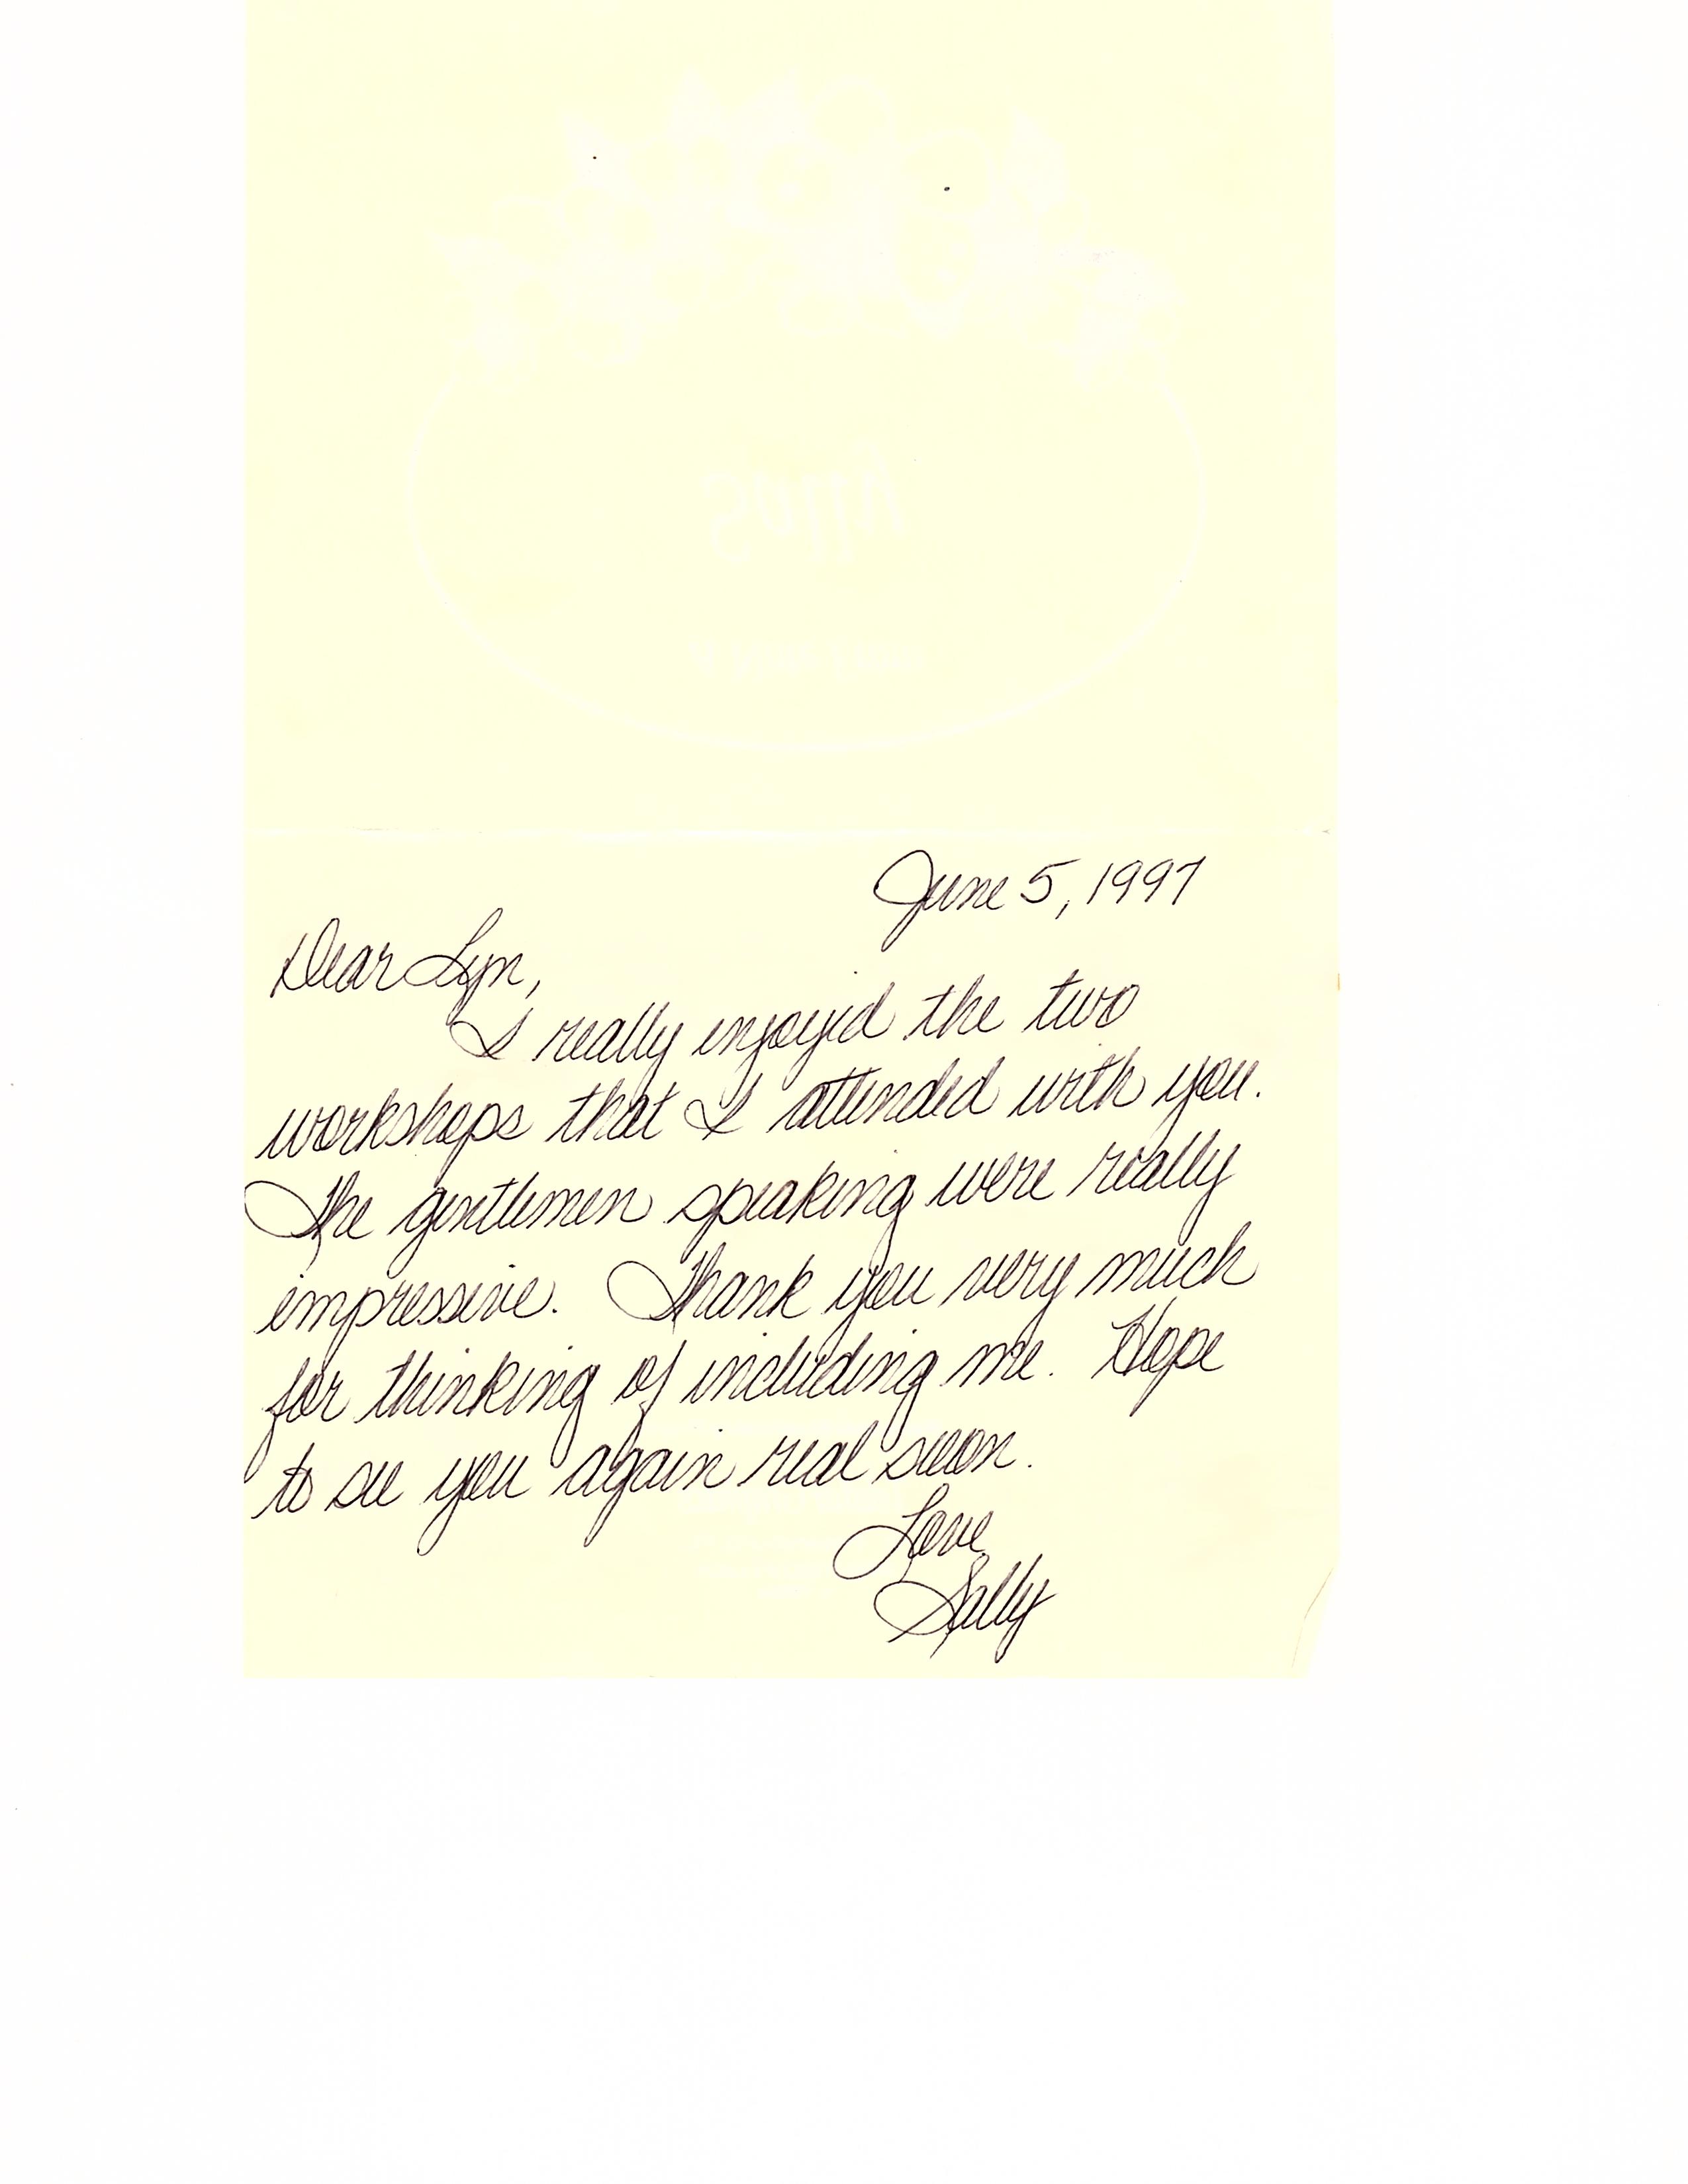 Sally
June 5, 1997
Dear Lyn,
I really enjoyed the two
workshops that I attended with you.
The gentlemen speaking were really
impressive. Thank you very much
for thinking of including me. Hope
to see you again real soon.
Love,
Sally